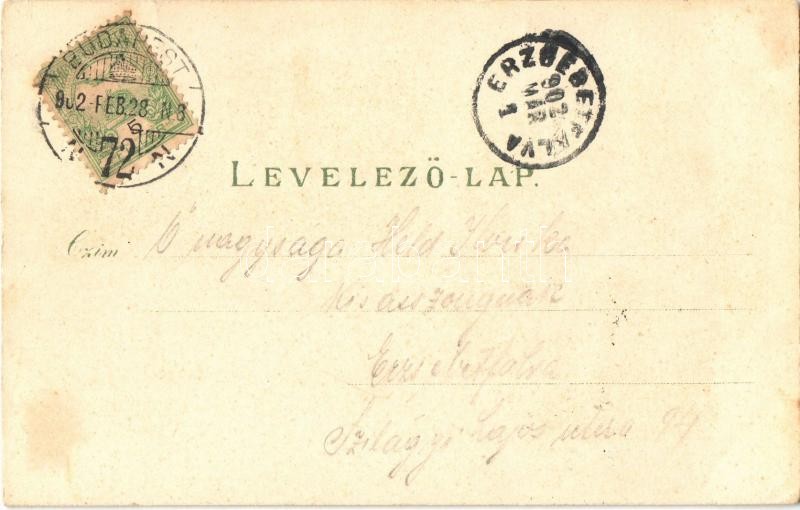 BUDAPEST
902-FEB.28 N8
5
72
ERZSÉBETFALVA
902
MÁR
1
LEVELEZŐ-LAP.
Czim Ő nagysága Held Ilonka
kisasszonynak
Erzsébetfalva
Szilágyi Lajos utcza 94